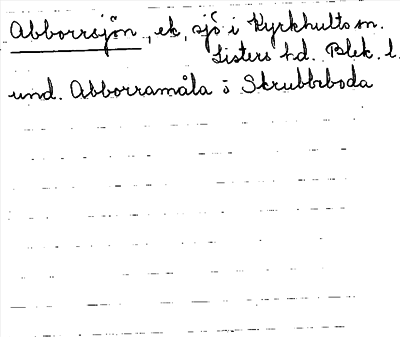 Abborrsjön, ek, sjö i Kyrkhults sn.
Listers hd. Blek. l.
und. Abborramåla i Skrubbeboda